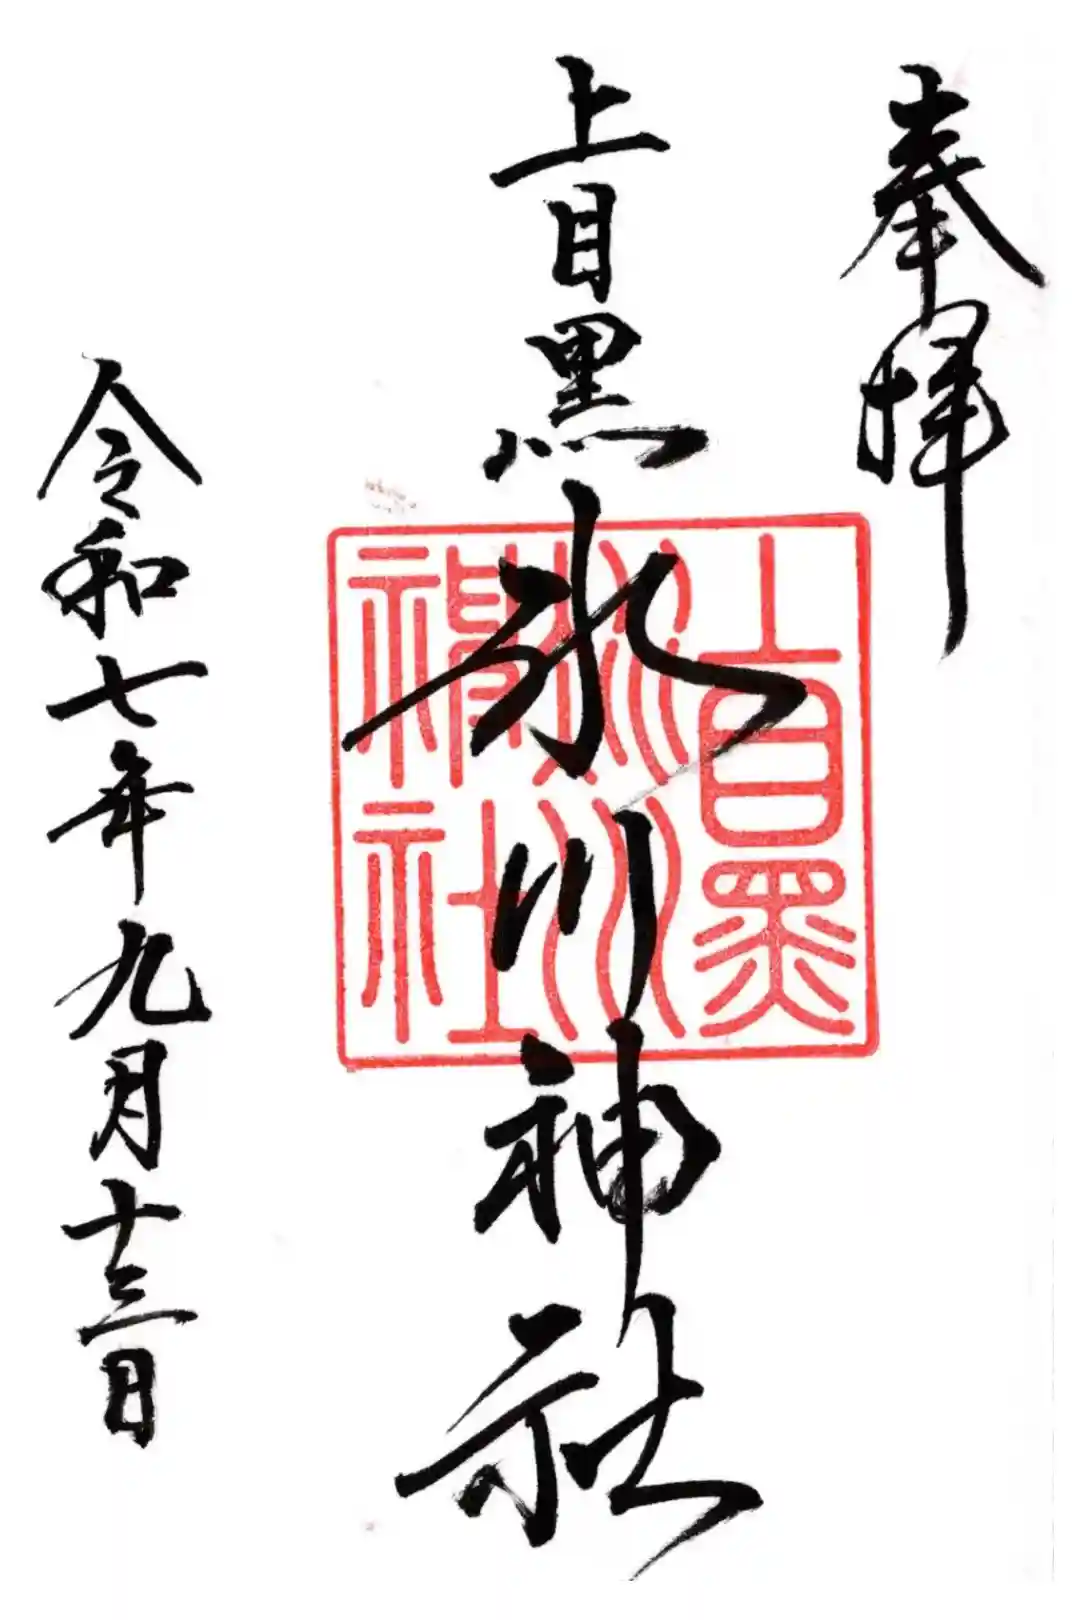 奉拝
上目黒氷川神社
上目黒
氷川
神社
令和七年九月十三日